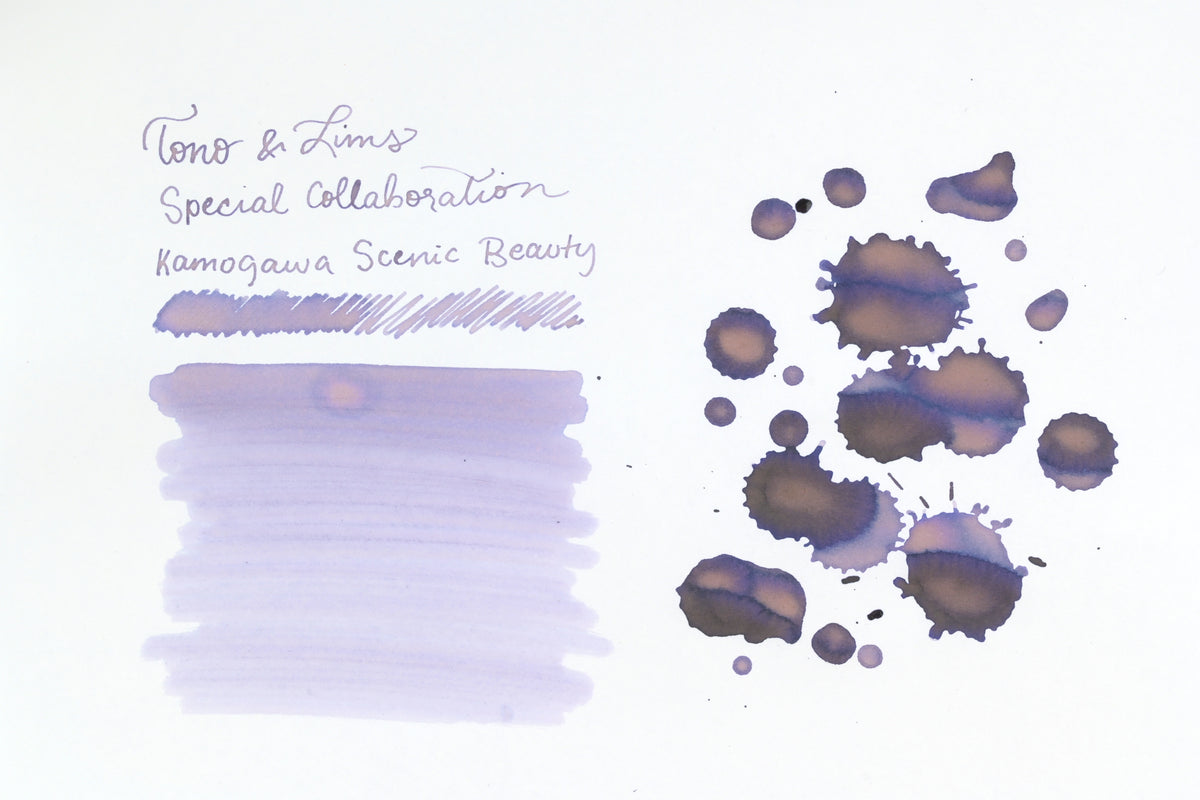 Tono & Lims
Special Collaboration
Kamogawa Scenic Beauty